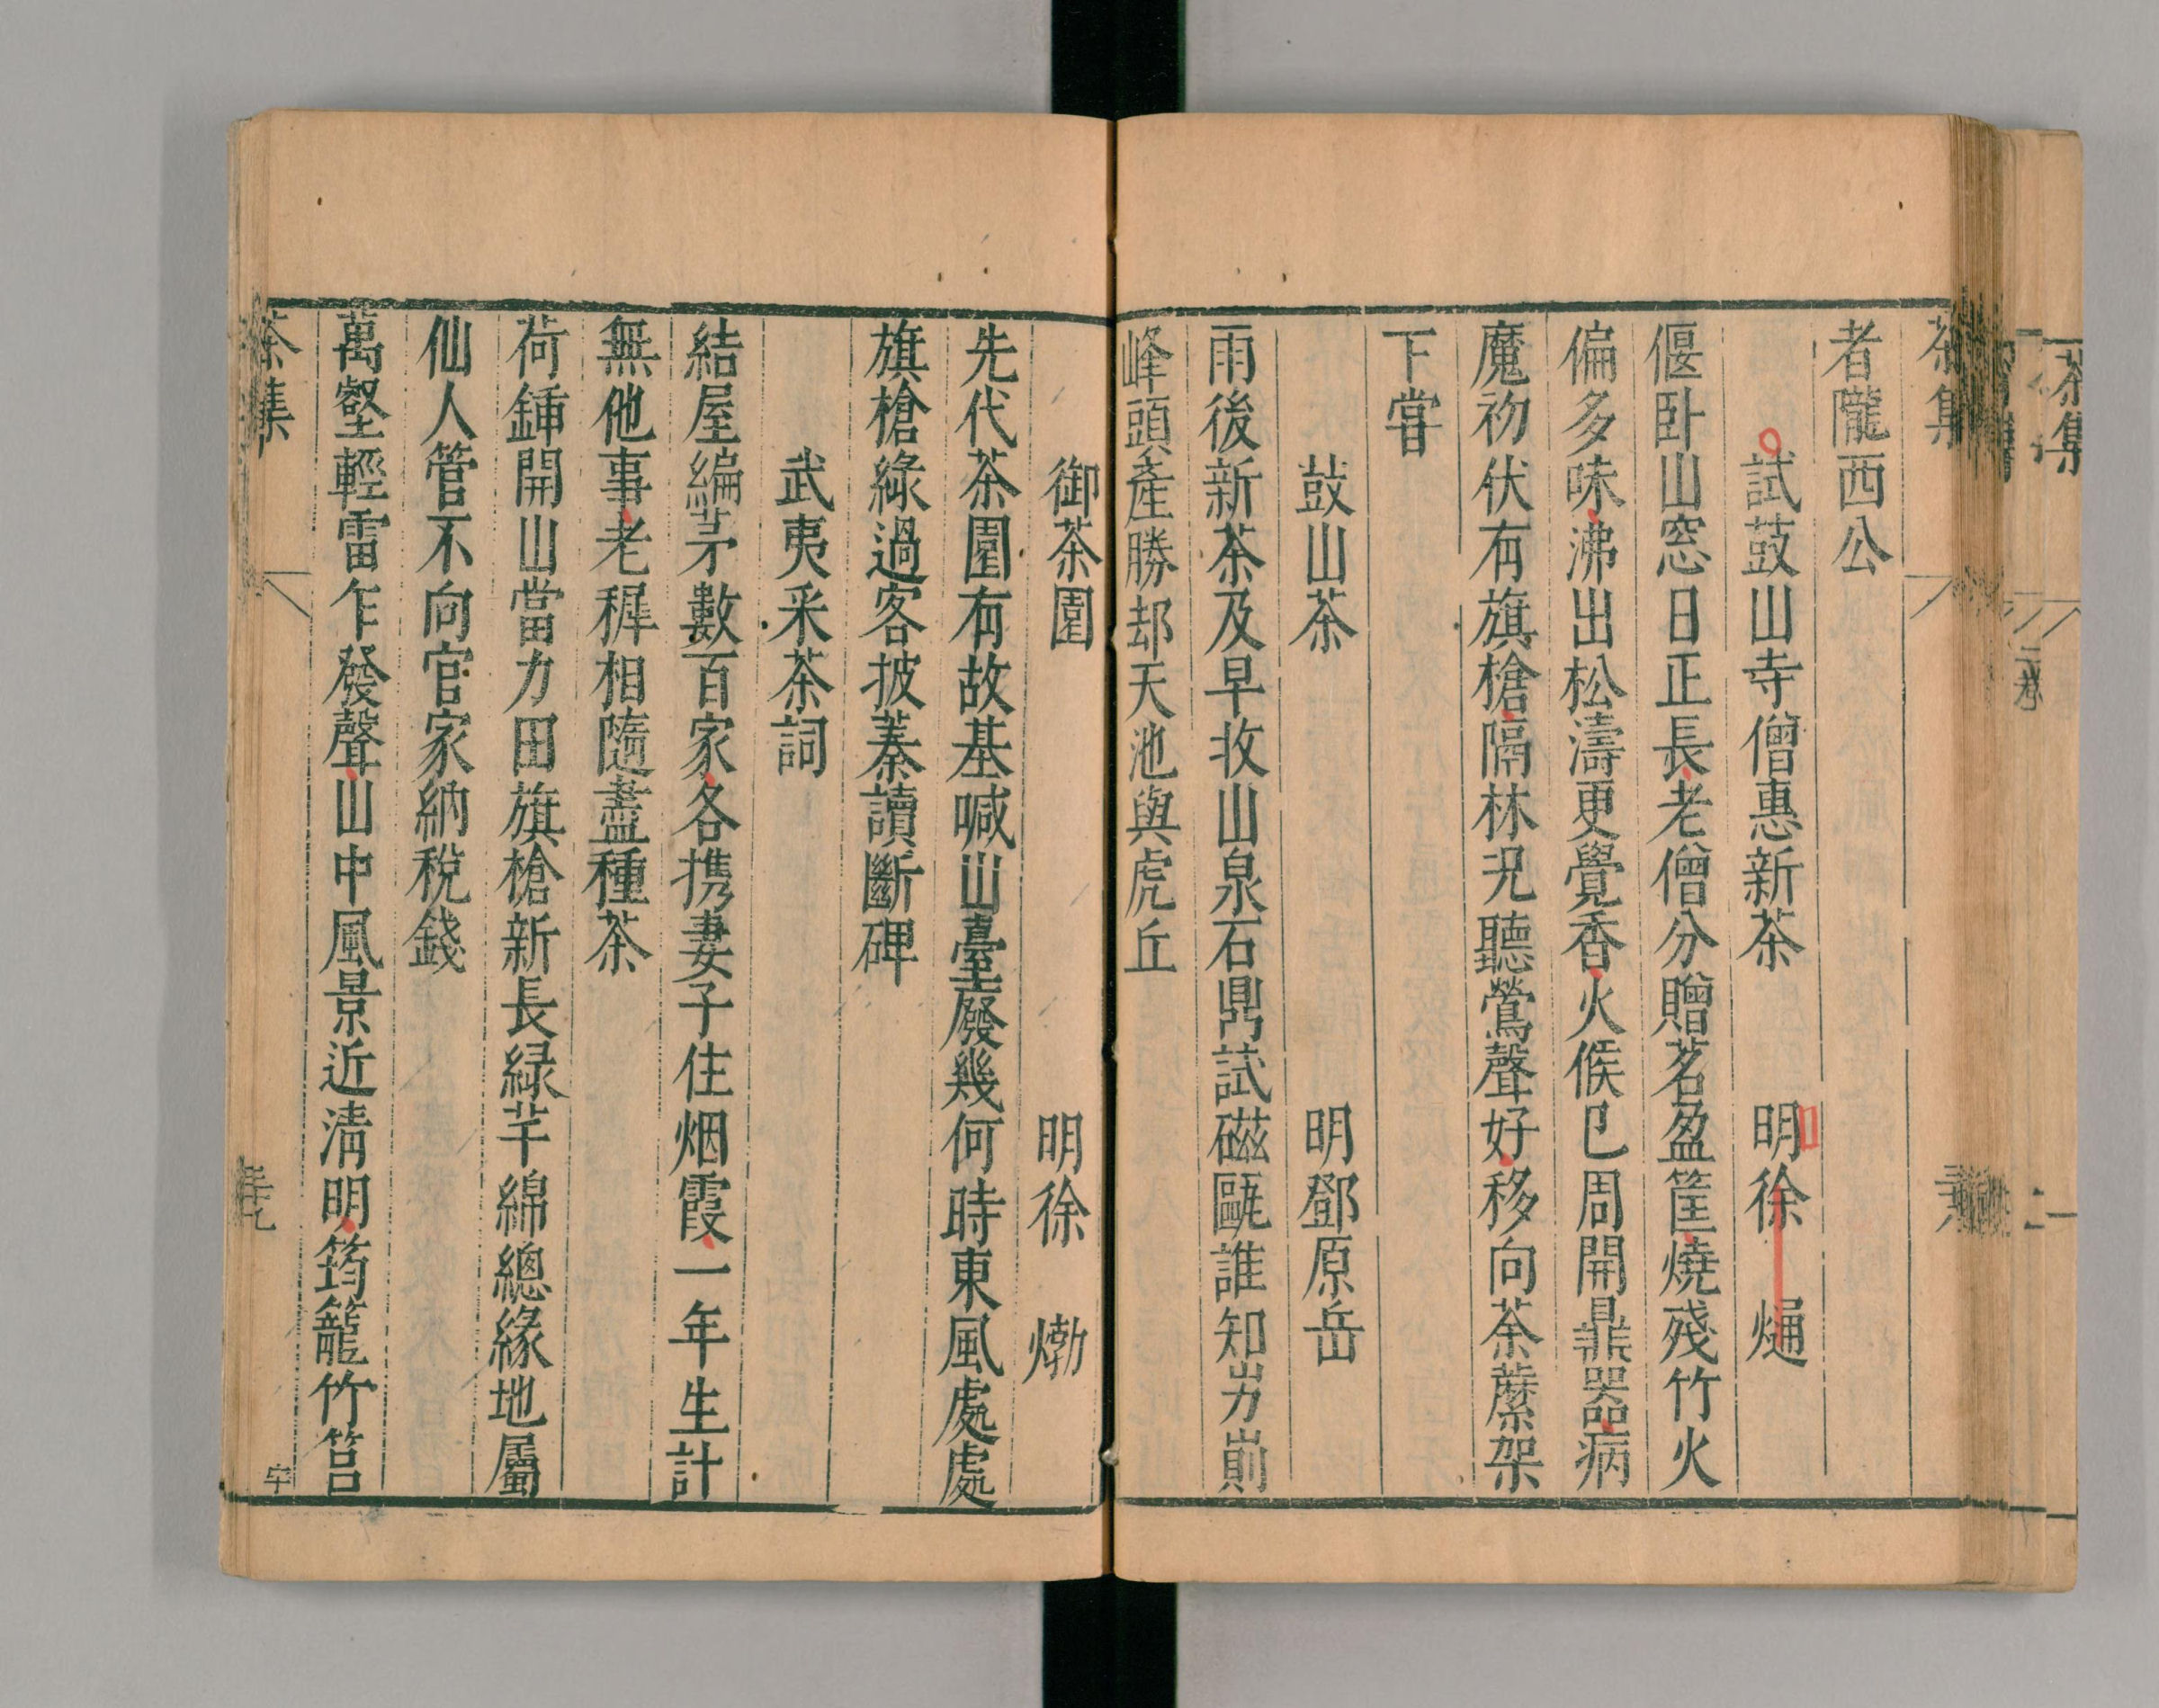 茶集
者隴西公
試鼓山寺僧惠新茶 明徐 𤊹
偃卧山窓日正長老僧分贈茗盈筐燒殘竹火
偏多味沸出松濤更覺香火候已周開鼎器病
魔初伏有旗槍隔林況聽鶯聲好移向荼䕷架
下嘗
鼓山茶 明鄧原岳
雨後新茶及早收山泉石鼎試磁甌誰知屴崱
峰頭產勝却天池與虎丘
御茶園 明徐 㶿
先代茶園有故基喊山臺廢幾何時東風處處
旗槍綠過客披蓁讀斷碑
武夷采茶詞
結屋編茅數百家各携妻子住烟霞一年生計
無他事老穉相隨盡種茶
荷鍤開山當力田旗槍新長緑芊綿總緣地屬
仙人管不向官家納稅錢
萬壑輕雷乍發聲山中風景近清明筠籠竹筥
茶集